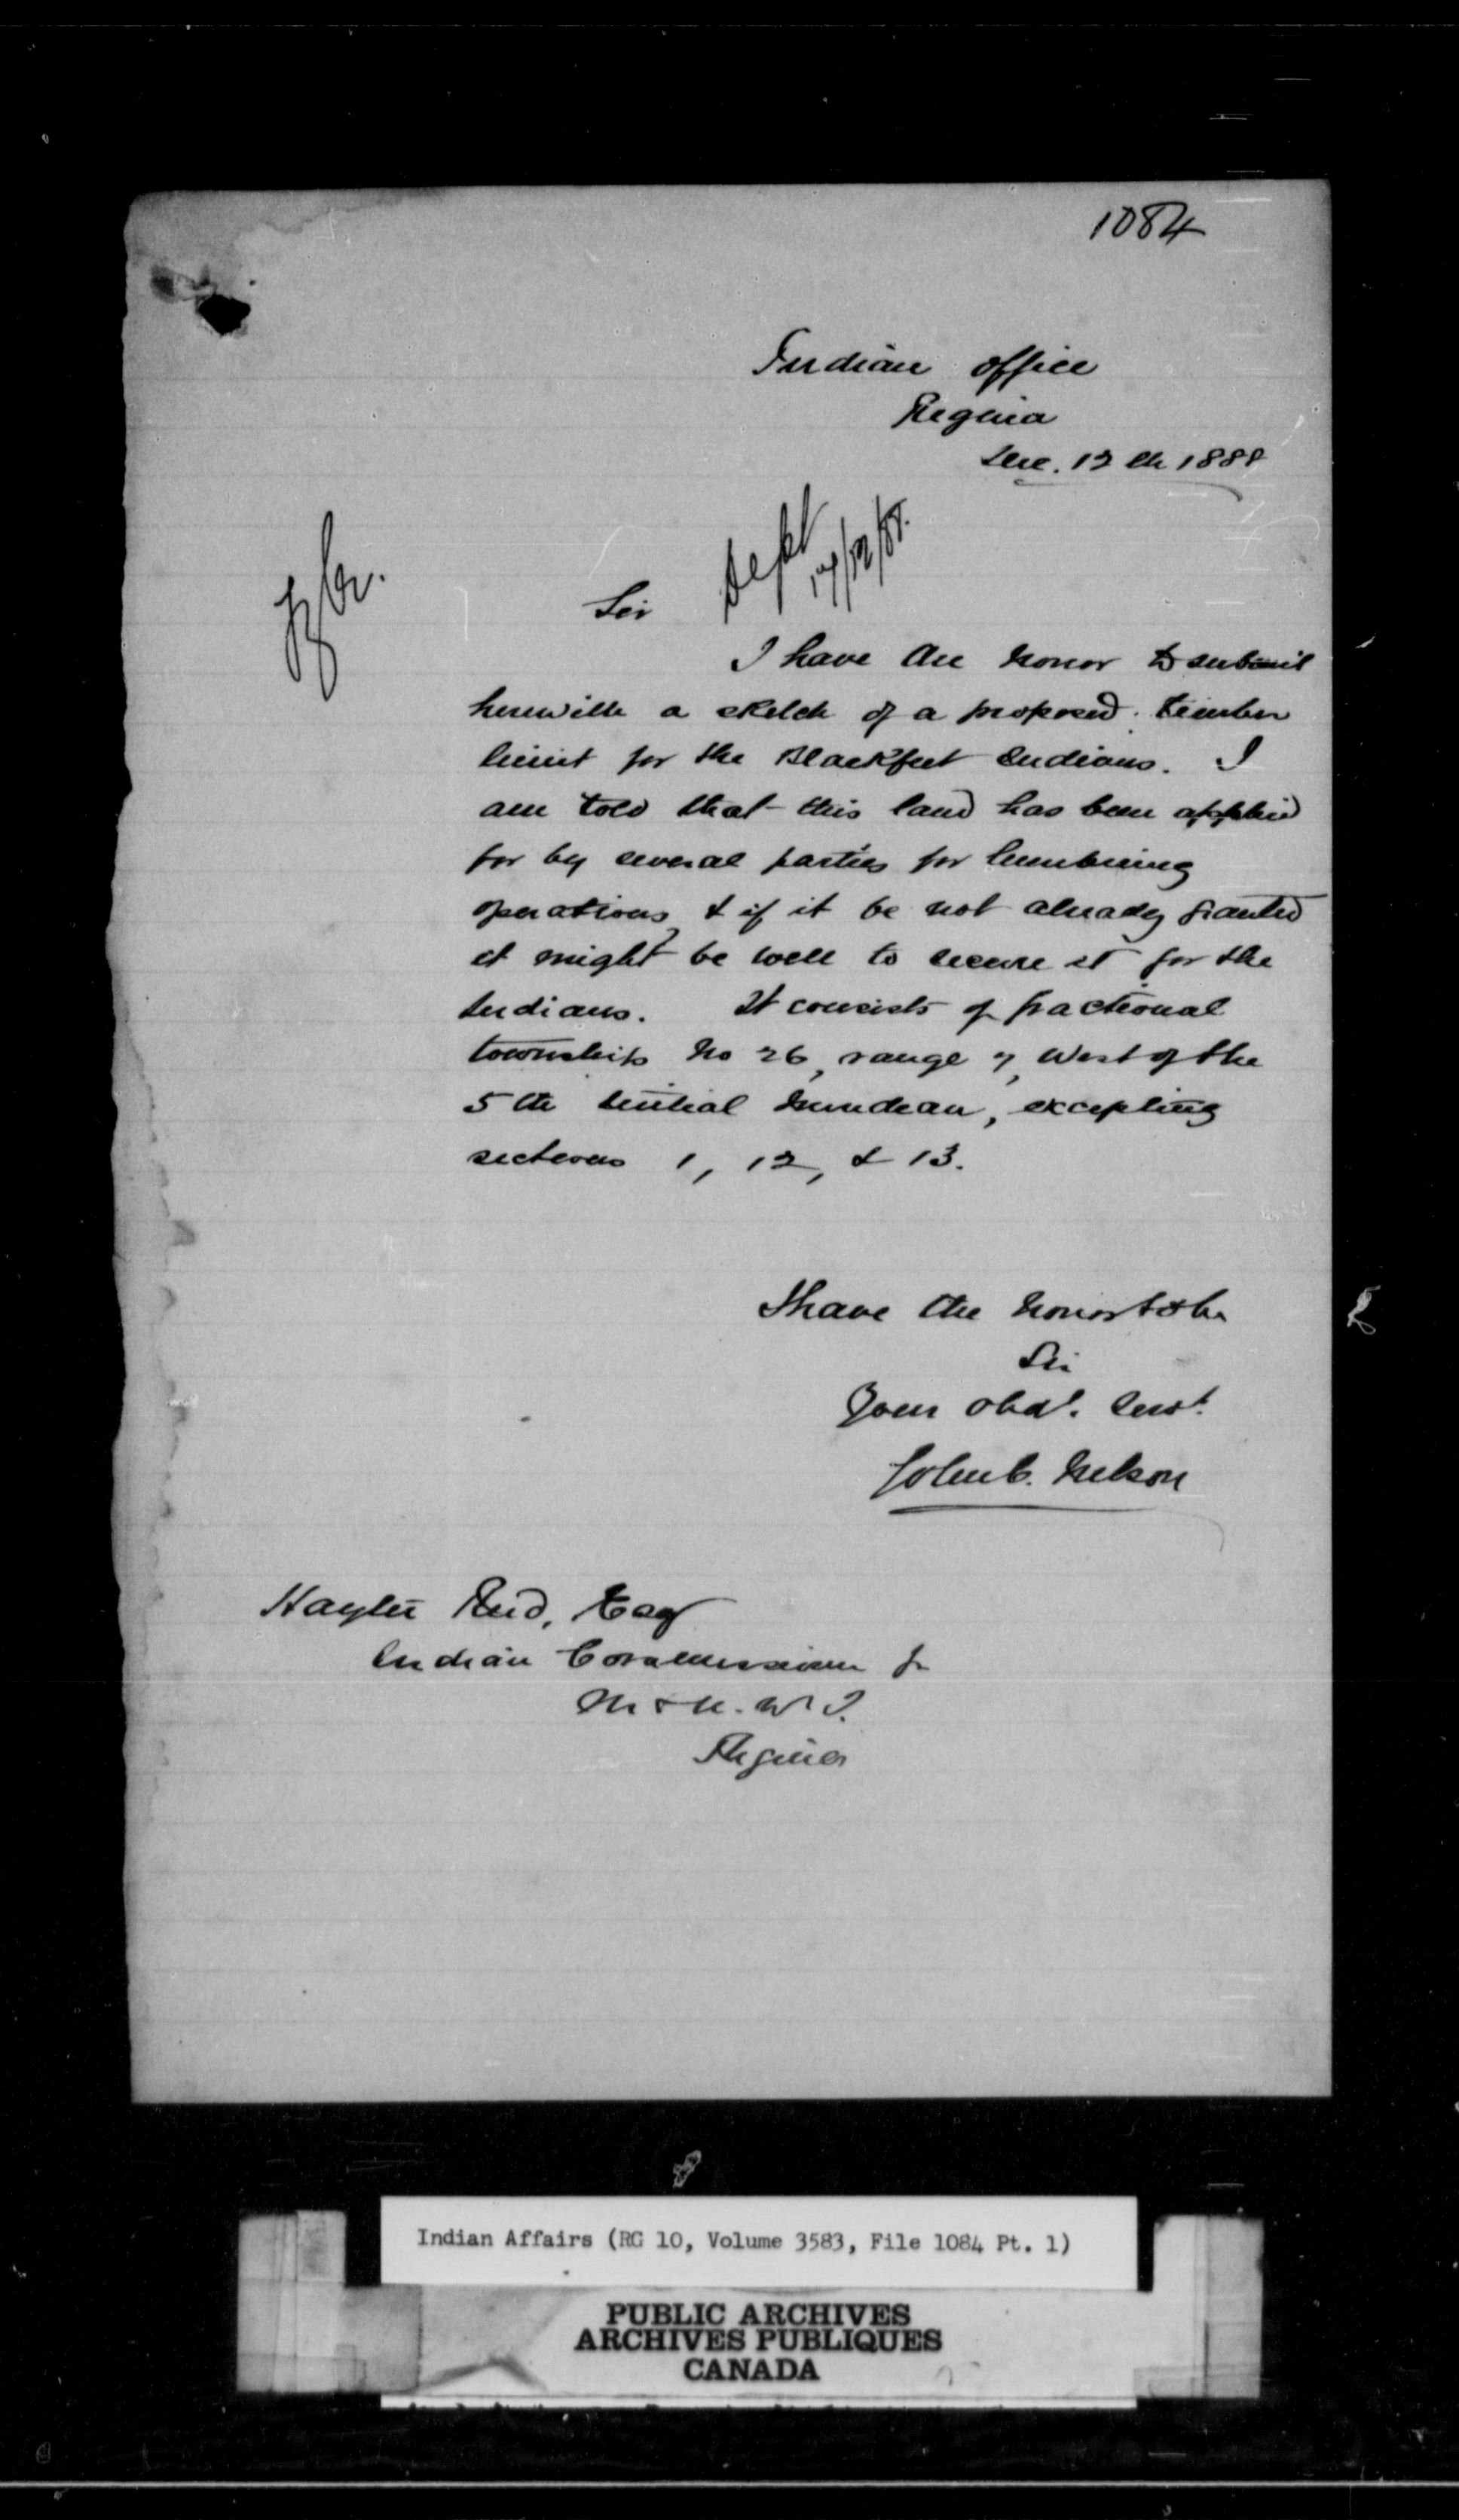 1084
Indian Office
Regina
Dec. 12th 1888
Dept
17/12/88.
Sir
I have the honor to submit
herewith a sketch of a proposed timber
limit for the Blackfeet Indians. I
am told that this land has been applied
for by several parties for lumbering
operations, & if it be not already granted
it might be well to secure it for the
Indians. It consists of fractional
township No 26, range 7, West of the
5th Initial Meridian, excepting
sections 1, 12, & 13.
I have the honor to be
Sir
Your obdt. Servt.
John C. Nelson
Hayter Reed, Esq
Indian Commissioner for
M & N. W T.
Regina
Indian Affairs (RG 10, Volume 3583, File 1084 Pt. 1)
PUBLIC ARCHIVES
ARCHIVES PUBLIQUES
CANADA